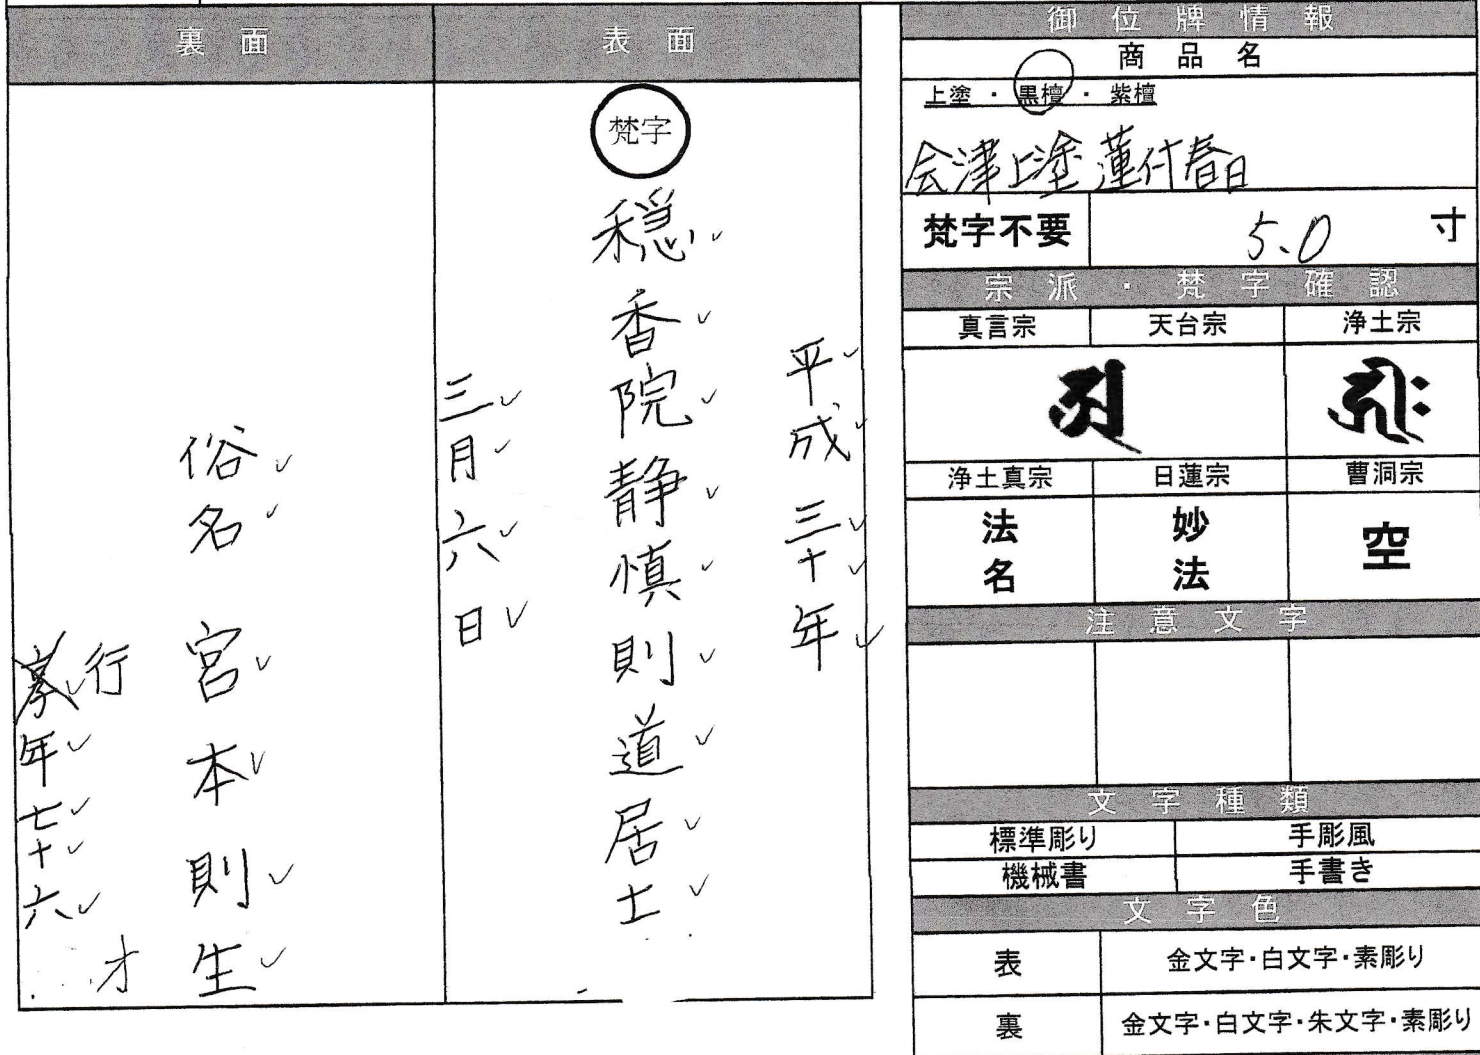 裏面
表面
梵字
平成三十年
穏香院静慎則道居士
三月六日
俗名 宮本則生
行年七十六才
御位牌情報
商品名
上塗・黒檀・紫檀
会津上塗蓮付春日
梵字不要
5.0 寸
宗派・梵字確認
真言宗 天台宗 浄土宗
浄土真宗 日蓮宗 曹洞宗
法名 妙法 空
注意文字
文字種類
標準彫り 手彫風
機械書 手書き
文字色
表 金文字・白文字・素彫り
裏 金文字・白文字・朱文字・素彫り